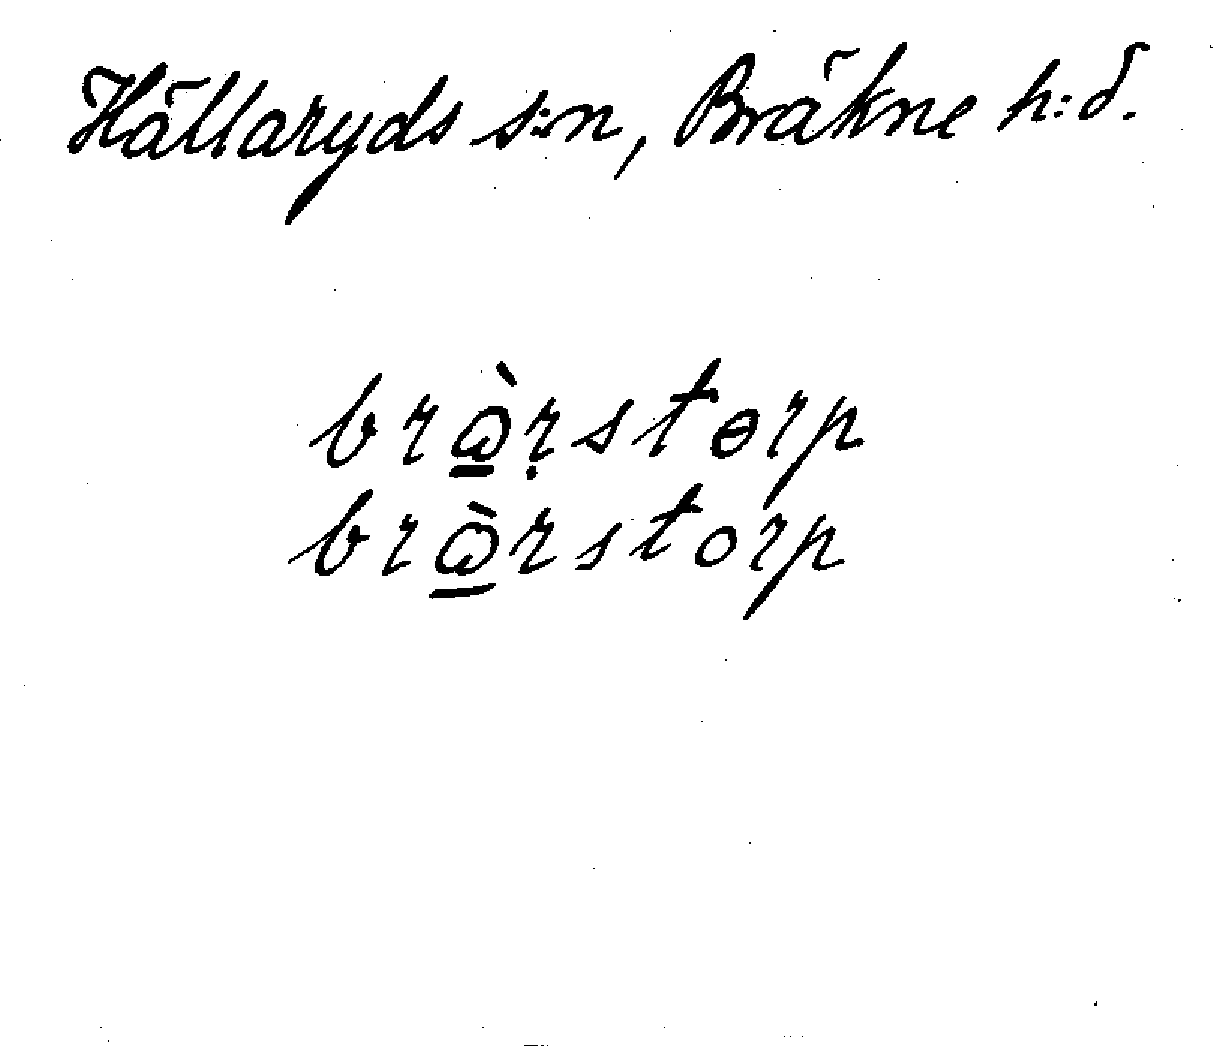 Hällaryds s:n, Bräkne h:d.
brὼ̲ṛstɵrp
brὼ̲rstorp